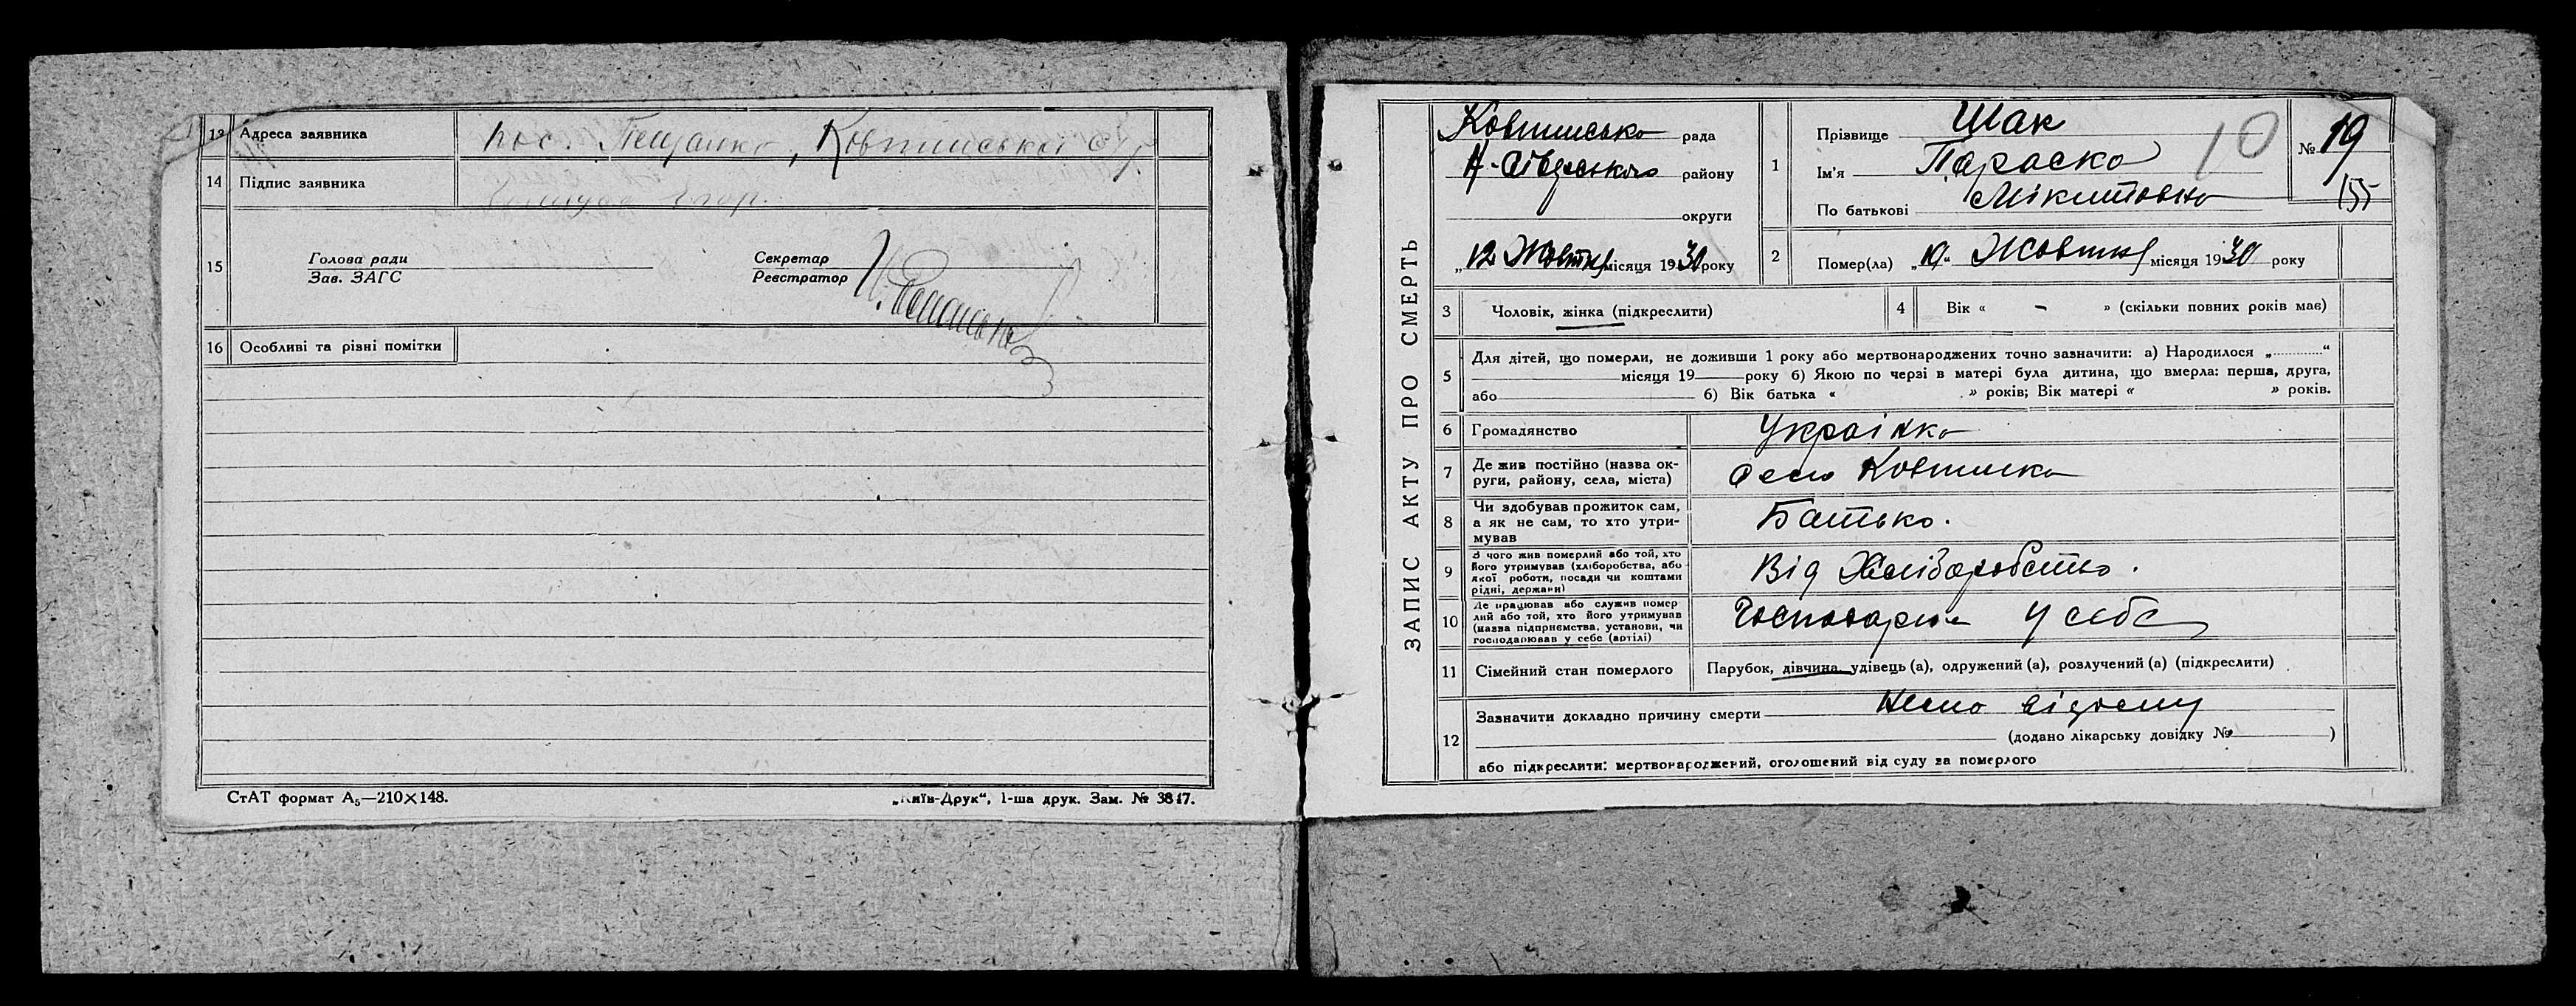 13 Адреса заявника пос. Пещанка, Ковтинської с/р
14 Підпис заявника
15 Голова ради
Зав. ЗАГС
Секретар
Реєстратор
16 Особливі та різні помітки
СтАТ формат А₅—210×148.
„Київ-Друк“, 1-ша друк. Зам. № 3847.
ЗАПИС АКТУ ПРО СМЕРТЬ
Ковтинсько рада
Н-Сіверського району
округи
„12 Жовтня місяця 1930 року
1 Прізвище Шак
Ім'я Параска
По батькові Мікитовна
10
№ 19
155
2 Помер(ла) „10“ Жовтня місяця 1930 року
3 Чоловік, жінка (підкреслити)
4 Вік « - » (скільки повних років має)
5 Для дітей, що померли, не доживши 1 року або мертвонароджених точно зазначити: а) Народилося „............“
місяця 19 року б) Якою по черзі в матері була дитина, що вмерла: перша, друга,
або б) Вік батька « » років; Вік матері « » років.
6 Громадянство Українка
7 Де жив постійно (назва ок-
руги, району, села, міста) село Ковтинка
8 Чи здобував прожиток сам,
а як не сам, то хто утри-
мував Батько.
9 З чого жив померлий або той, хто
його утримував (хліборобства, або
якої роботи, посади чи коштами
рідні, держави) Від Хліборобства.
10 Де працював або служив помер
лий або той, хто його утримував
(назва підприємства, установи, чи
господарював у себе (артілі) Господарюв у себе
11 Сімейний стан померлого Парубок, дівчина, удівець (а), одружений (а), розлучений (а) (підкреслити)
12 Зазначити докладно причину смерти
(додано лікарську довідку № )
або підкреслити: мертвонароджений, оголошений від суду за померлого